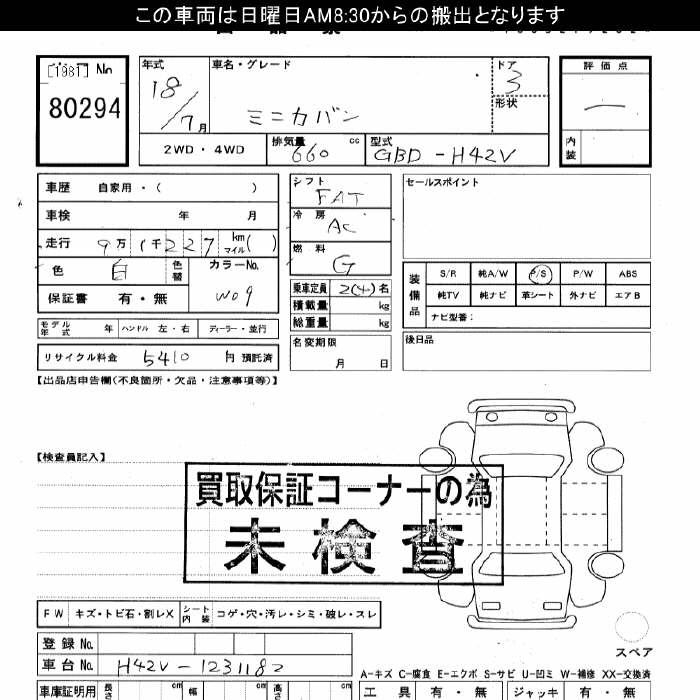 この車両は日曜日AM8:30からの搬出となります
[1981] No
80294
年式
18/7月
車名・グレード
ミニカバン
ドア
3
形状
評価点
内装
2WD・4WD
排気量
660 cc
型式
GBD-H42V
車歴 自家用・( )
車検 年 月
走行 9万1千227 km マイル ( )
色 白 色替 カラーNo.
W09
保証書 有・無
モデル年式 年 ハンドル 左・右 ディーラー・並行
リサイクル料金 5410 円 預託済
シフト
FAT
冷房
AC
燃料
G
乗車定員 2(4)名
積載量 kg
総重量 kg
名変期限
月 日
セールスポイント
装備品
S/R 純A/W P/S P/W ABS
純TV 純ナビ 革シート 外ナビ エアB
ナビ型番:
後日品
【出品店申告欄(不良箇所・欠品・注意事項等)】
【検査員記入】
買取保証コーナーの為
未検査
FW キズ・トビ石・割レX シート内装 コゲ・穴・汚レ・シミ・破レ・スレ
登録No.
車台No. H42V-1231182
車庫証明用 長さ cm 幅 cm 高さ cm
スペア
A-キズ C-腐食 E-エクボ S-サビ U-凹ミ W-補修 XX-交換済
工具 有・無 ジャッキ 有・無